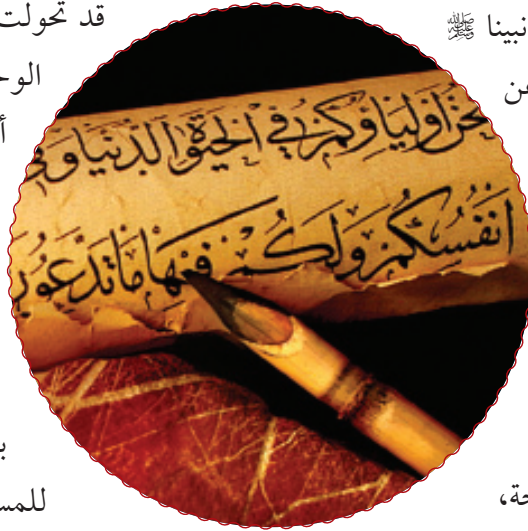 نبينا ﷺ
قد تحولت
نحن اولياؤكم في الحيٰوة الدنيا وفي
انفسكم ولكم فيها ما تدعون